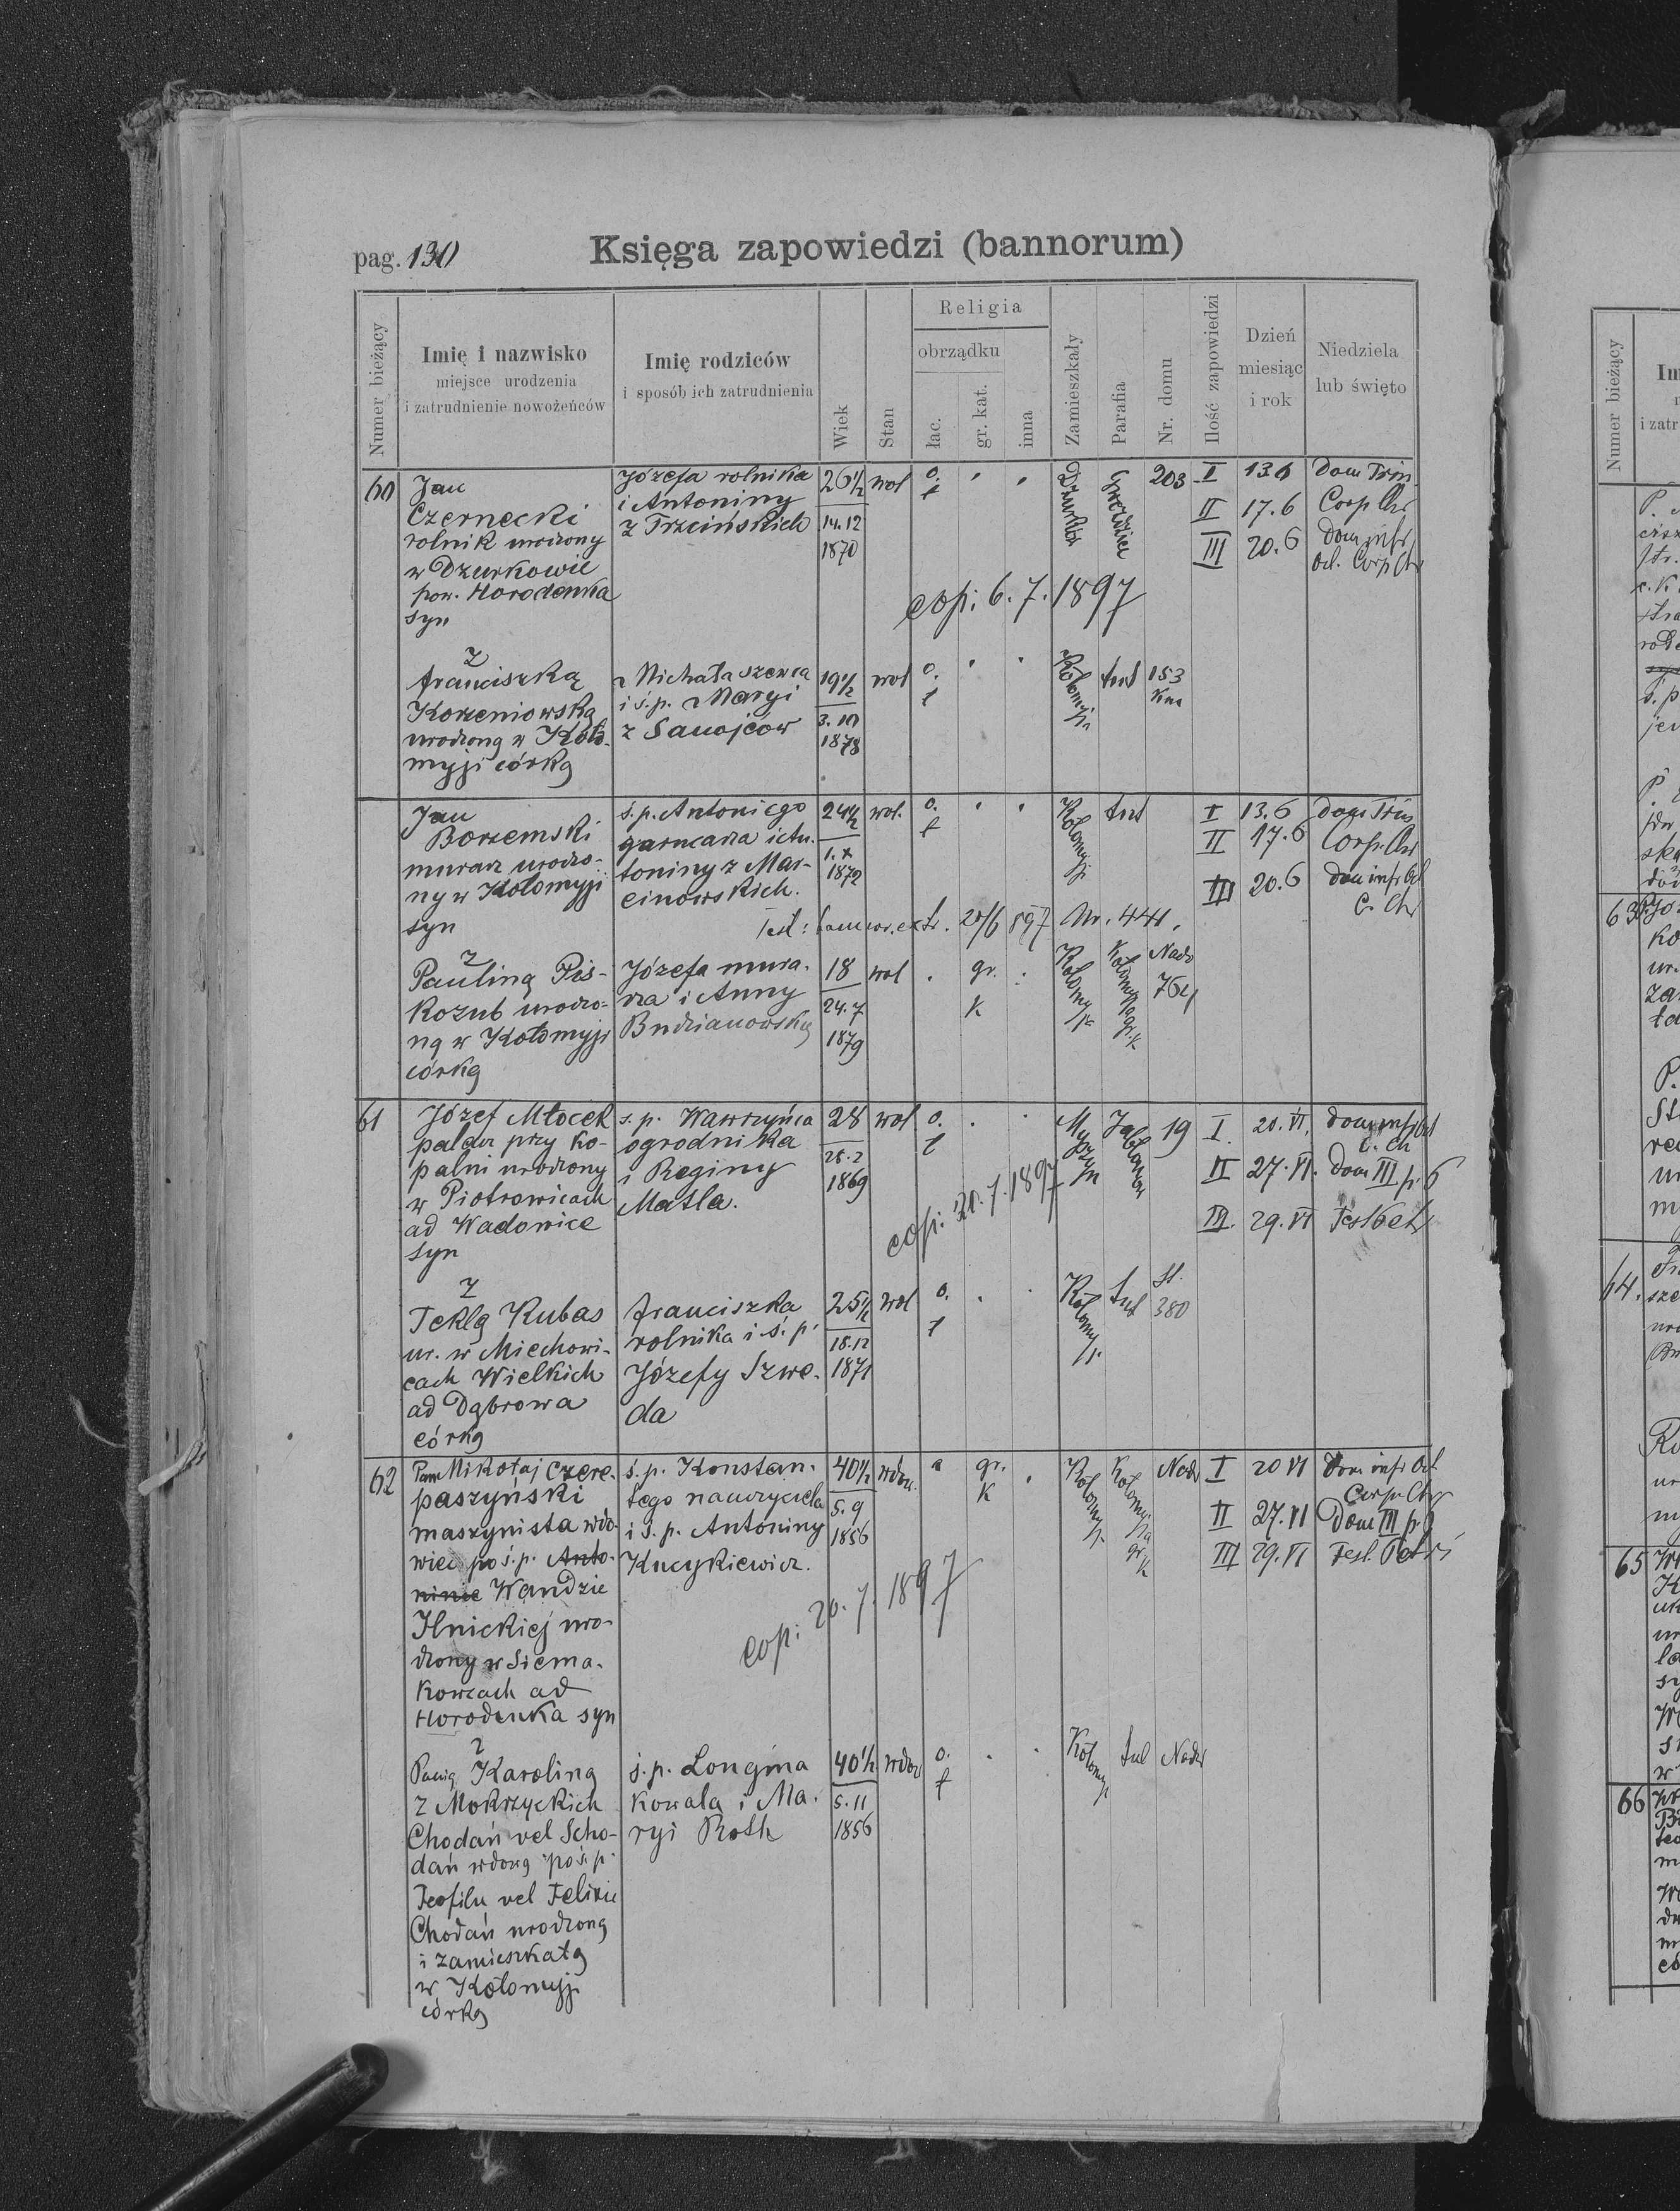 pag. 130
Księga zapowiedzi (bannorum)
Numer bieżący
Imię i nazwisko
miejsce urodzenia
i zatrudnienie nowożeńców
Imię rodziców
i sposób ich zatrudnienia
Wiek
Stan
Religia
obrządku
łac.
gr. kat.
inna
Zamieszkały
Parafia
Nr. domu
Ilość zapowiedzi
Dzień
miesiąc
i rok
Niedziela
lub święto
60
Jan
Czernecki
rolnik urodzony
w Dzurkowie
pow. Horodenka
syn
Józefa rolnika
i Antoniny
z Trzcińskich
26½
14.12
1870
wol
o.
ł
Dzurków
203
I 13.6 Dom Trin
II 17.6 Corp Chr
III 20.6 Dom infr
Oct. Corp Chr
cop: 6.7.1897
z
Franciszką
Korzeniowską
urodzoną w Koło-
myji córką
Michała szewca
i ś.p. Maryi
z Sanojców
19½
3.10
1878
wol
o.
ł
Kołomyji
tut
153
Jan
Borzemski
murarz urodzo-
ny w Kołomyji
syn
ś.p. Antoniego
garncarza i An.
toniny z Mar-
cinowskich.
24½
1.X
1872
wol.
o.
ł
Kołomyji
tut
I 13.6 Dom Trin
II 17.6 Corp. Chr
III 20.6 Dom infr Oct
C. Chr
20/6 897 Nr. 441.
z
Pauliną Pis-
kozub urodzo-
ną w Kołomyji
córką
Józefa mura-
rza i Anny
Budzianowskiej
18
24.7
1879
wol
gr.
k
Kołomyja
Kołomyja gr.k
Nadw
764
61
Józef Młocek
palacz przy ko-
palni urodzony
w Piotrowicach
ad Wadowice
syn
ś.p. Wawrzyńca
ogrodnika
i Reginy
Matla.
28
28.2
1869
wol
o.
ł
Myszyn
Jabłonów
19
I. 20.VI. Dom infr Oct
C. Ch
II 27.VI. Dom III p. 6
III. 29.VI Fest Petr
cop: 20.7.1897
z
Teklą Kubas
ur. w Miechowi-
cach Wielkich
ad Dąbrowa
córką
Franciszka
rolnika i ś.p.
Józefy Szwe-
da
25½
18.12
1871
wol
o.
ł
Kołomyja
tut
St.
380
62
Pan Mikołaj Czere-
paszyński
maszynista wdo-
wiec po ś.p. Anto-
ninie Wandzie
Ilnickiej uro-
dzony w Siema-
kowcach ad
Horodenka syn
ś.p. Konstan-
tego nauczyciela
i ś.p. Antoniny
Kucykiewicz.
40½
5.9
1856
wdow.
gr.
k
Kołomyja
Kołomyja
gr. k
Nadw
I 20 VI Dom infr Oct
Corp. Chr
II 27.VI Dom III p. 6
III 29.VI Fest. Petri
cop: 20.7.1897
z
Panią Karoliną
z Mokrzyckich
Chodań vel Scho-
dań wdową po ś.p.
Teofilu vel Felixie
Chodań urodzoną
i zamieszkałą
w Kołomyji
córką
ś.p. Longina
kowala i Ma-
ryi Roth
40½
5.11
1856
wdow
o.
ł
Kołomyja
tut
Nadw
63
64.
65
66